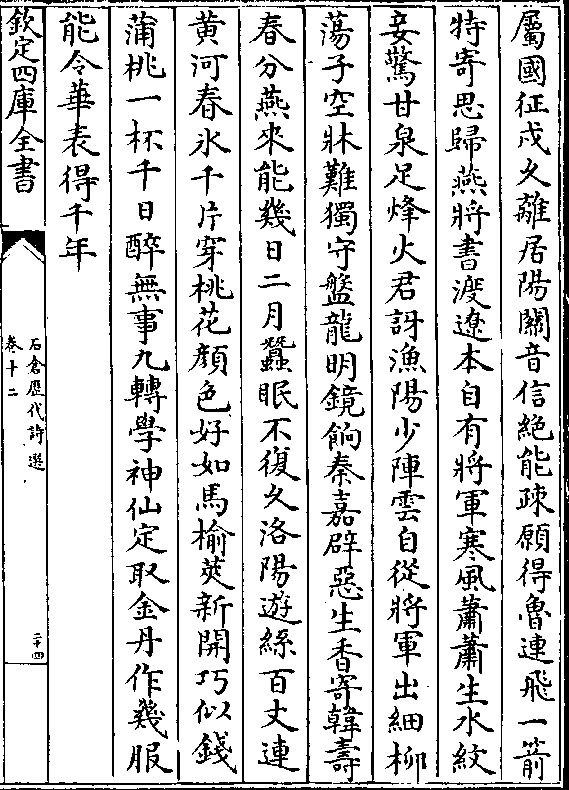 屬國征戍乆離居陽關音信絶能疎願得魯連飛一箭
特寄思歸燕將書渡遼本自有將軍寒風蕭蕭生水紋
妾驚甘泉足烽火君訝漁陽少陣雲自從將軍出細栁
蕩子空牀難獨守盤龍明鏡餉秦嘉辟惡生香寄韓壽
春分燕來能幾日二月蠶眠不復乆洛陽遊絲百丈連
黄河春氷千片穿桃花顔色好如馬榆莢新開巧似錢
蒲桃一杯千日醉無事九轉學神仙定取金丹作幾服
能令華表得千年
欽定四庫全書
石倉歴代詩選
卷十二
二十四